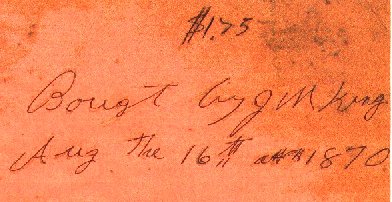 $1.75
Bougt by J M King
Aug the 16th 1870